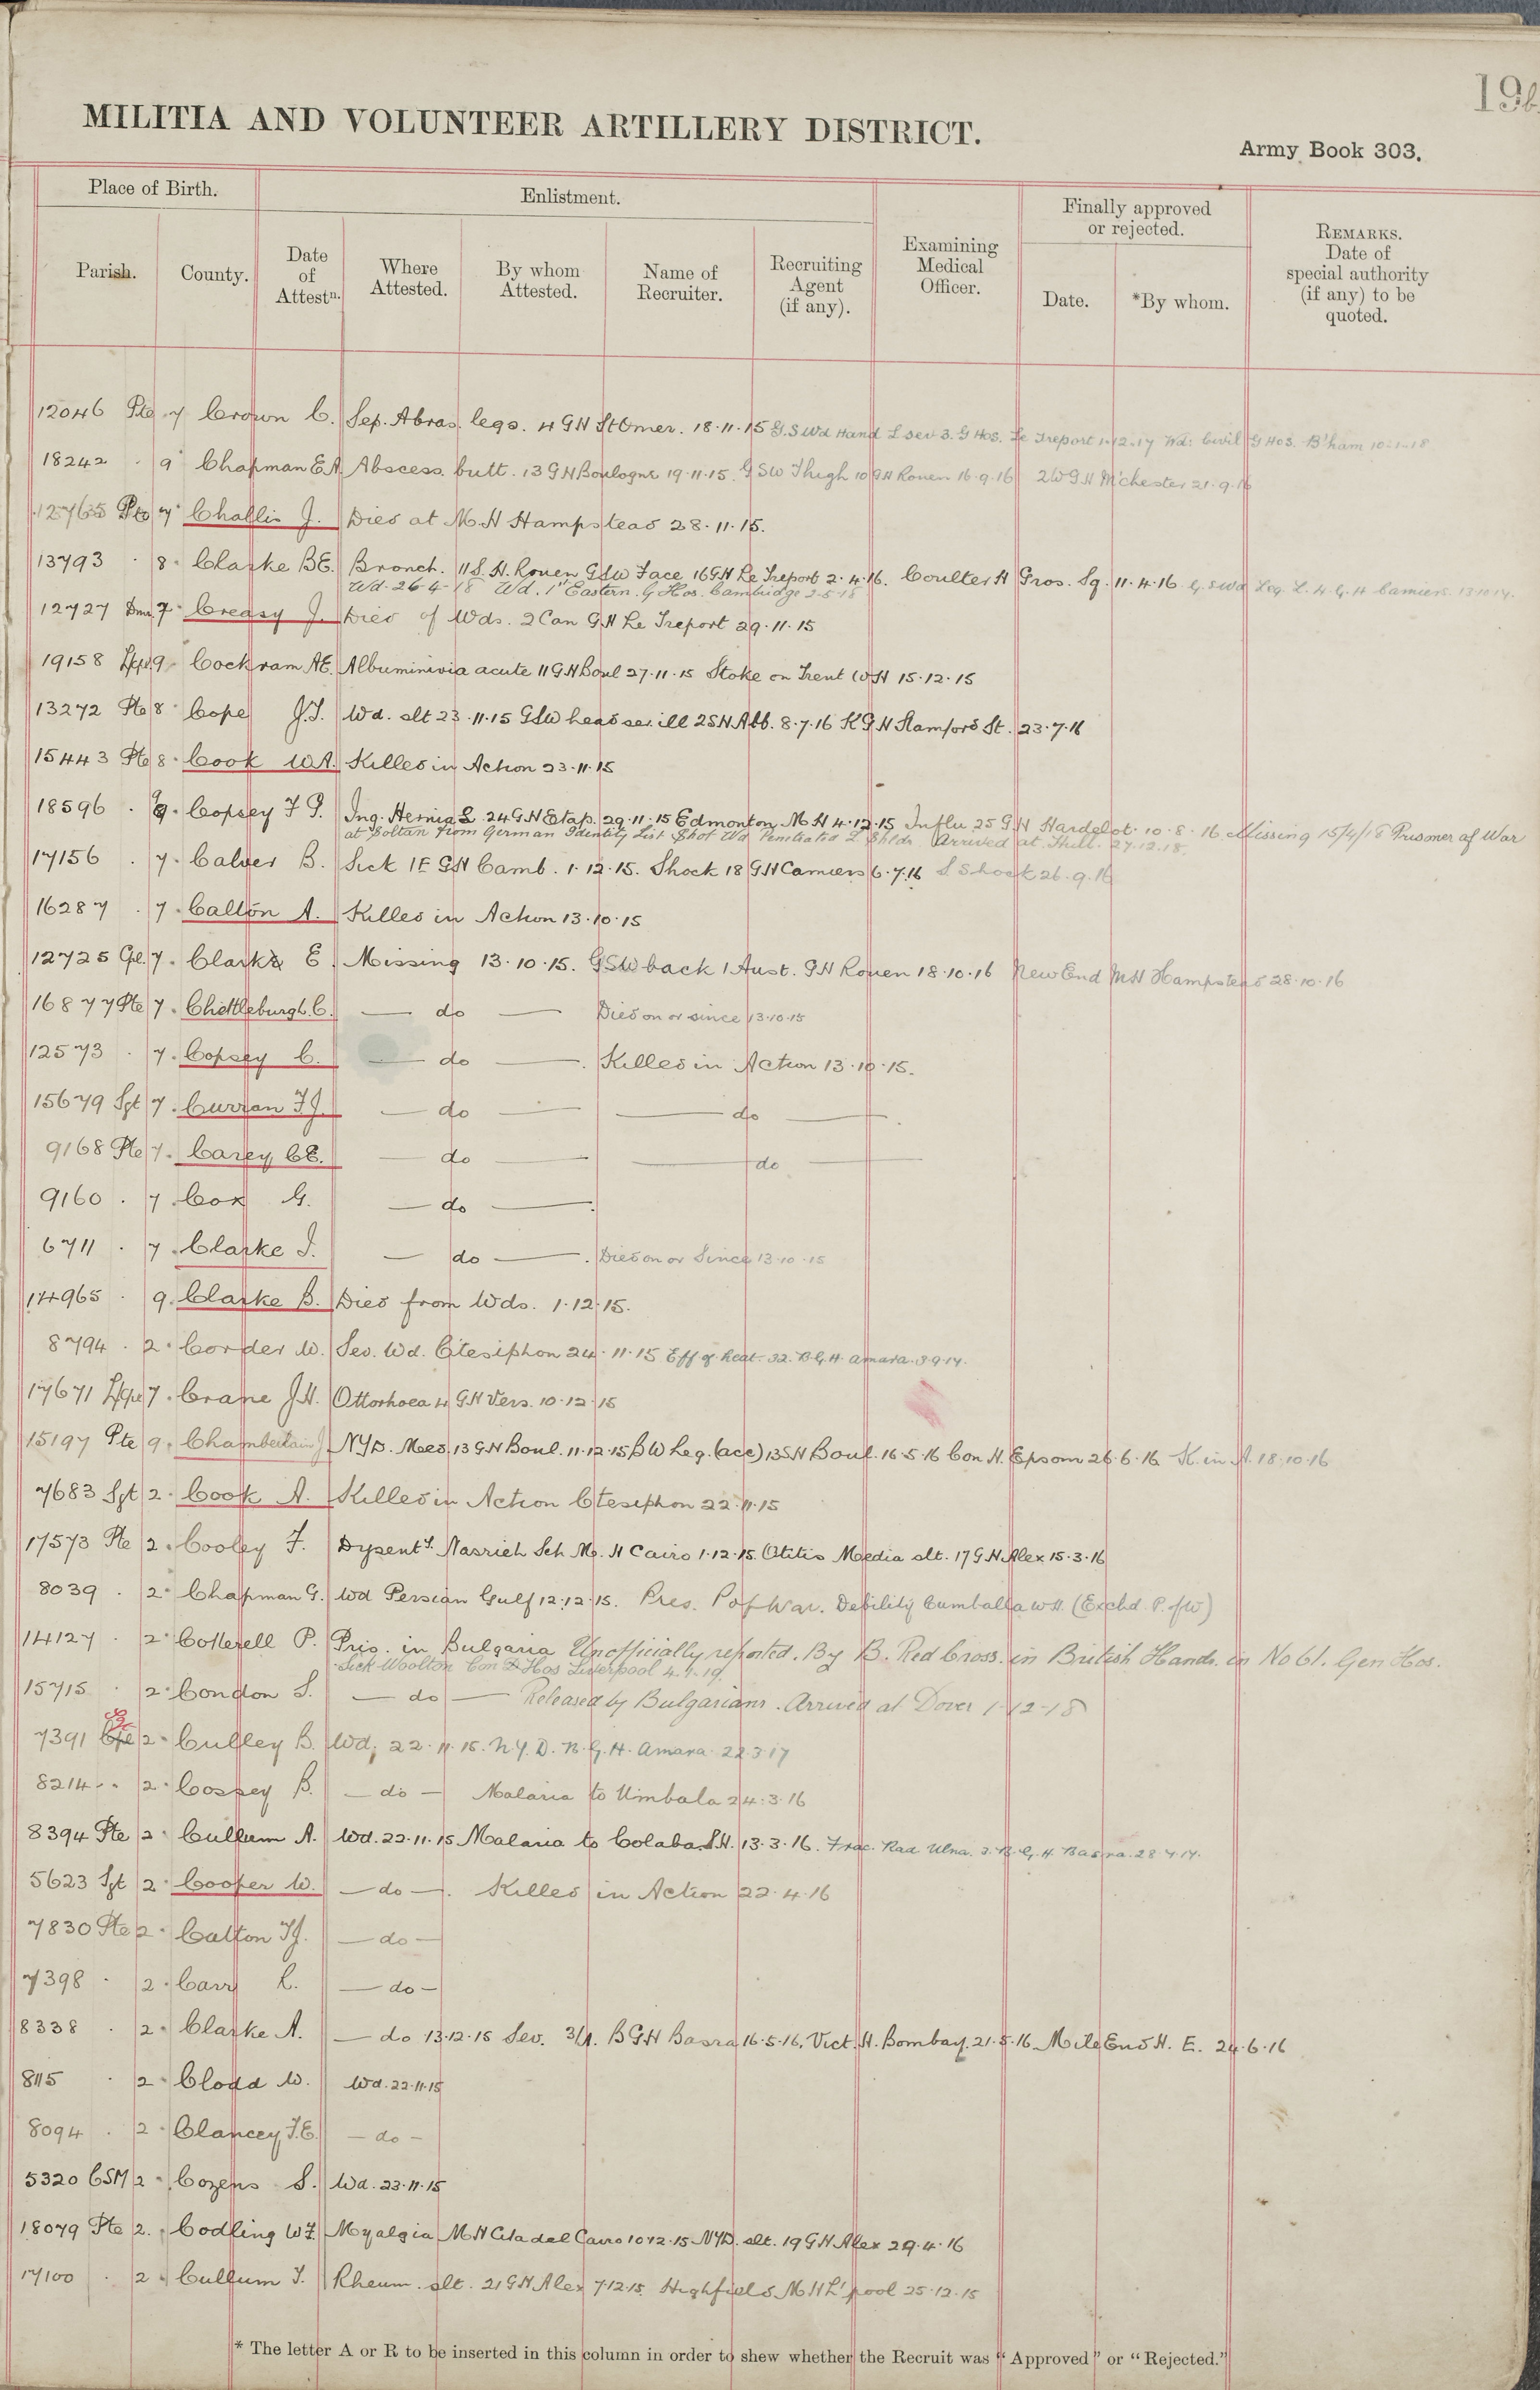 19b.
MILITIA AND VOLUNTEER ARTILLERY DISTRICT.
Army Book 303.
Place of Birth.
Enlistment.
Finally approved or rejected.
Parish.
County.
Date of Attestn.
Where Attested.
By whom Attested.
Name of Recruiter.
Recruiting Agent (if any).
Examining Medical Officer.
Date.
*By whom.
REMARKS. Date of special authority (if any) to be quoted.
12046 Pte 7 Crown C. Sep. Abras. legs. 4 GH St Omer. 18.11.15 G.S Wd Hand L sev 3. G Hos. Le Treport 1.12.17 Wd: Civil G Hos. B'ham 10.1.18
18242 . 9 Chapman E.A. Abscess. butt. 13 GH Boulogne 19.11.15. GSW Thigh 10 GH Rouen 16.9.16 2WGH M'chester 21.9.16
12765 Pte 7 Challis J. Died at M.H Hampstead 28.11.15.
13793 . 8. Clarke BE. Bronch. 11 S.H. Rouen GSW Face 16GH Le Treport 2.4.16. Coulter H Gros. Sq. 11.4.16 G.S Wd Leg. L. 4. G.H Camiers. 13.10.17.
Wd. 26-4-18 Wd. 1st Eastern. G Hos. Cambridge 2-5-18
12727 Dmr 7 Creasy J. Died of Wds. 2 Can GH Le Treport 29.11.15
19158 L/Cpl 9. Cockram AE. Albuminivia acute 11 GH Boul 27.11.15 Stoke on Trent WH 15.12.15
13272 Pte 8 Cope J.T. Wd. slt 23.11.15 GSW head ser. ill 2SH Abb. 8.7.16 KGH Stamford St. 23.7.16
15443 Pte 8. Cook WA. Killed in Action 23.11.15
18596 . 9. Copsey F G. Ing. Hernia L. 24 G.H Etap. 29.11.15 Edmonton M H 4.12.15 Influ 25 G.H Hardelot. 10.8.16 Missing 15/4/18 Prisoner of War
at Soltan from German Identity List Shot Wd Penetrated L Shldr Arrived at Hull. 27.12.18.
17156 . 7. Calver B. Sick 1E GH Camb. 1.12.15. Shock 18 GH Camiers 6.7.16 S Shock 26.9.16
16287 . 7. Calton A. Killed in Action 13.10.15
12725 Cpl. 7. Clark E. Missing 13.10.15. GSW back 1 Aust. GH Rouen 18.10.16 New End MH Hampstead 28.10.16
16877 Pte 7. Chettleburgh. C. — do — Died on or since 13.10.15
12573 . 7. Copsey C. — do —. Killed in Action 13.10.15.
15679 Sgt 7. Curran FJ. — do — — do —.
9168 Pte 7. Carey CE. — do — — do —
9160 . 7. Cox G. — do —.
6711 . 7. Clarke J. — do —. Died on or Since 13.10.15
14965 . 9. Clarke B. Died from Wds. 1.12.15.
8794 . 2. Corder W. Sev. Wd. Ctesiphon 24.11.15 Eff of heat. 32. B.G.H. Amara. 3.9.17.
17671 L/Cpl 7. Crane J.H. Ottorhoea 4 GH Vers. 10.12.15
15197 Pte 9. Chamberlain J NYD. Med. 13 GH Boul. 11.12.15 BW Leg. (acc) 13SH Boul. 16.5.16 Con H. Epsom 26.6.16 K. in A. 18.10.16
7683 Sgt 2. Cook A. Killed in Action Ctesiphon 22.11.15
17573 Pte 2. Cooley F. Dysenty. Nasrieh Sch M.H Cairo 1.12.15. Otitis Media slt. 17 GH Alex 15.3.16
8039 . 2. Chapman G. Wd Persian Gulf 12.12.15. Pres. P of War. Debility Cumballa WH. (Exchd. P. of W)
14127 . 2. Cotterell P. Pris. in Bulgaria Unofficially reported. By B. Red Cross. in British Hands. in No 61. Gen Hos.
Sick Woolton Con D Hos Liverpool 4.1.19.
15715 . 2. Condon S. — do — Released by Bulgarians. Arrived at Dover 1-12-18
7391 2. Culley B. Wd; 22.11.15. N.Y.D. B.G.H. Amara 22.3.17
8214 . 2. Cossey B. — do — Malaria to Umbala 24.3.16
8394 Pte 2. Cullum A. Wd. 22.11.15 Malaria to Colaba. S.H. 13.3.16. Frac. Rad Ulna. 3. B.G.H. Basra. 28.7.17.
5623 Sgt 2. Cooper W. — do —. Killed in Action 22.4.16
7830 Pte 2. Catton FJ. — do —
7398 . 2. Carr R. — do —
8338 . 2. Clarke A. — do 13.12.15 Sev. 3/A. BGH Basra 16.5.16. Vict. H. Bombay. 21.5.16 Mile End H. E. 24.6.16
8115 . 2. Clodd W. Wd. 22.11.15
8094 . 2. Clancey F.E. — do —
5320 CSM 2. Cozens S. Wd. 23.11.15
18079 Pte 2. Codling WF. Myalgia MH Citadel Cairo 10.12.15 NYD. slt. 19 GH Alex 29.4.16
17100 . 2. Cullum F. Rheum. slt. 21 GH Alex 7.12.15. Highfield MH L'pool 25.12.15
* The letter A or R to be inserted in this column in order to shew whether the Recruit was "Approved" or "Rejected."